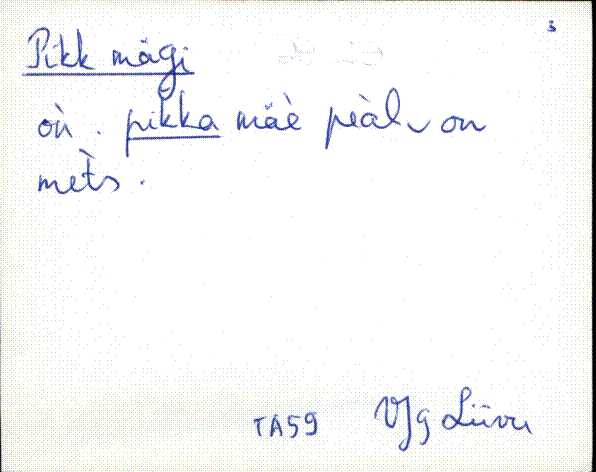 3
Pikk mägi
oǹ. pikka mäè peàl on
met̀s.
TA59 VJg Liivu